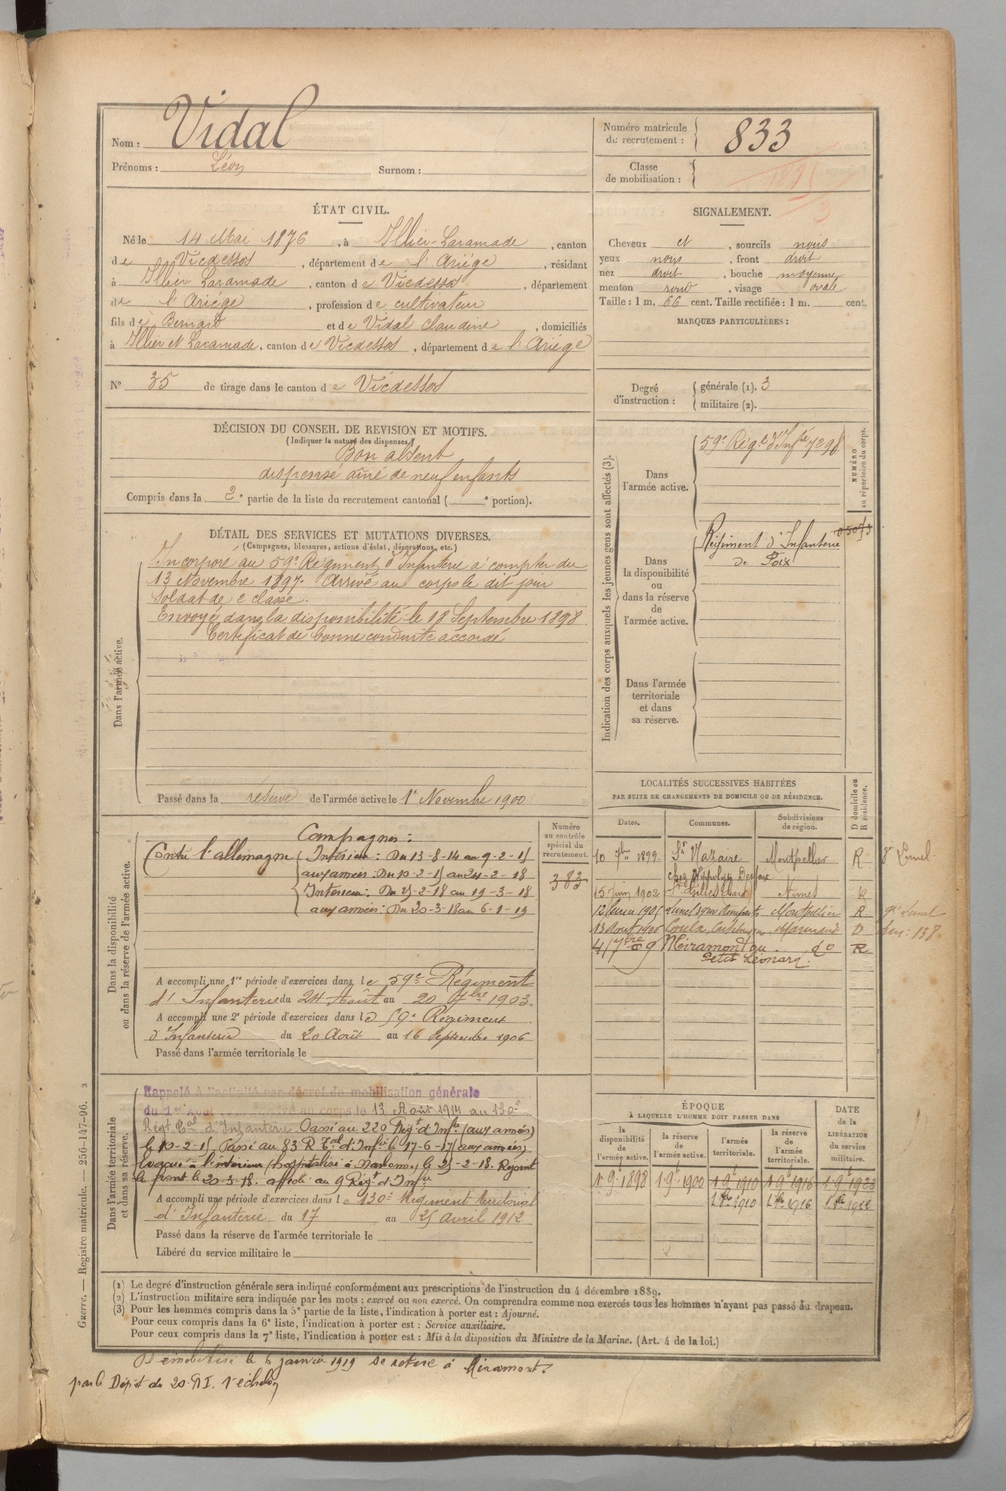 Nom : Vidal
Prénoms : Léon Surnom :
Numéro matricule du recrutement : 833
Classe de mobilisation :
ÉTAT CIVIL.
Né le 14 Mai 1876, à Illier-Laramade, canton
de Vicdessos, département de l'Ariége, résidant
à Illier Laramade, canton de Vicdessos, département
de l'Ariége, profession de cultivateur
fils de Bernard et de Vidal Claudine, domiciliés
à Illier et Laramade, canton de Vicdessos, département de l'Ariége
N° 35 de tirage dans le canton de Vicdessos
SIGNALEMENT.
Cheveux et, sourcils noirs
yeux noirs, front droit
nez droit, bouche moyenne
menton rond, visage ovale
Taille : 1 m. 66 cent. Taille rectifiée : 1 m. cent.
MARQUES PARTICULIÈRES :
Degré d'instruction : générale (1). 3
militaire (2).
DÉCISION DU CONSEIL DE REVISION ET MOTIFS.
(Indiquer la nature des dispenses.)
Bon absent
dispensé ainé de neuf enfants
Compris dans la 2e partie de la liste du recrutement cantonal ( e portion).
DÉTAIL DES SERVICES ET MUTATIONS DIVERSES.
(Campagnes, blessures, actions d'éclat, décorations, etc.)
Dans l'armée active.
Incorporé au 59e Régiment d'Infanterie à compter du
13 Novembre 1897. Arrivé au corps le dit jour
Soldat de 2e classe.
Envoyé dans la disponibilité le 18 Septembre 1898
Certificat de bonne conduite accordé
Passé dans la réserve de l'armée active le 1er Novembre 1900
Indication des corps auxquels les jeunes gens sont affectés (3).
NUMÉRO au répertoire du corps.
Dans l'armée active.
59e Régt d'Infie 7298
Dans la disponibilité ou dans la réserve de l'armée active.
Régiment d'Infanterie
de Foix
Dans l'armée territoriale et dans sa réserve.
LOCALITÉS SUCCESSIVES HABITÉES
PAR SUITE DE CHANGEMENTS DE DOMICILE OU DE RÉSIDENCE.
Dates. Communes. Subdivisions de région. D domicile ou R résidence.
10 9bre 1899. St Nazaire Montpellier R
15 Juin 1902 St Gilles Nimes R
1905 Montpellier R
13 Août 1906 Marmande D
1909 Miramont au do R
Petit Léonard.
Dans la disponibilité ou dans la réserve de l'armée active.
Numéro au contrôle spécial du recrutement.
383
Campagnes :
Contre l'allemagne Intérieur : Du 13-8-14 au 9-2-15
aux armées : Du 10-2-15 au 24-2-18
Intérieur : Du 25-2-18 au 19-3-18
aux armées : Du 20-3-18 au 6-1-19
A accompli une 1re période d'exercices dans le 59e Régiment
d'Infanterie du 24 Août au 20 7bre 1903.
A accompli une 2e période d'exercices dans le 59e Régiment
d'Infanterie du 20 Août au 16 Septembre 1906
Passé dans l'armée territoriale le
Dans l'armée territoriale et dans sa réserve.
Rappelé à l'activité par décret de mobilisation générale
du 1er Août au corps le 13 Août 1914 au 130e
Régt Tal d'Infanterie Passé au 220e Régt d'Infie (aux armées)
le 10-2-15 Passé au 83 R. Tal d'Infie le 17-6-17 (aux armées)
Evacué à l'intérieur le 25-2-18. Rejoint
le front le 20-3-18. affecté au 9 Régt d'Infie
A accompli une période d'exercices dans le 130e Régiment territorial
d'Infanterie du 17 au 25 avril 1912
Passé dans la réserve de l'armée territoriale le
Libéré du service militaire le
ÉPOQUE
À LAQUELLE L'HOMME DOIT PASSER DANS
DATE DE LA LIBÉRATION du service militaire.
la disponibilité de l'armée active. la réserve de l'armée active. l'armée territoriale. la réserve de l'armée territoriale.
1 9e 1898 1 9e 1900 1 9e 1910 1 9e 1916 1 9e 1923
1 8bre 1910 1 8bre 1916 1 8bre 1922
(1) Le degré d'instruction générale sera indiqué conformément aux prescriptions de l'instruction du 4 décembre 1889.
(2) L'instruction militaire sera indiquée par les mots : exercé ou non exercé. On comprendra comme non exercés tous les hommes n'ayant pas passé au drapeau.
(3) Pour les hommes compris dans la 5e partie de la liste, l'indication à porter est : Ajourné.
Pour ceux compris dans la 6e liste, l'indication à porter est : Service auxiliaire.
Pour ceux compris dans la 7e liste, l'indication à porter est : Mis à la disposition du Ministre de la Marine. (Art. 4 de la loi.)
Guerre. — Registre matricule. — 256-147-96.
Démobilisé le 6 janvier 1919 se retire à Miramont.
par le Dépôt du 20 R.I. 1er échelon